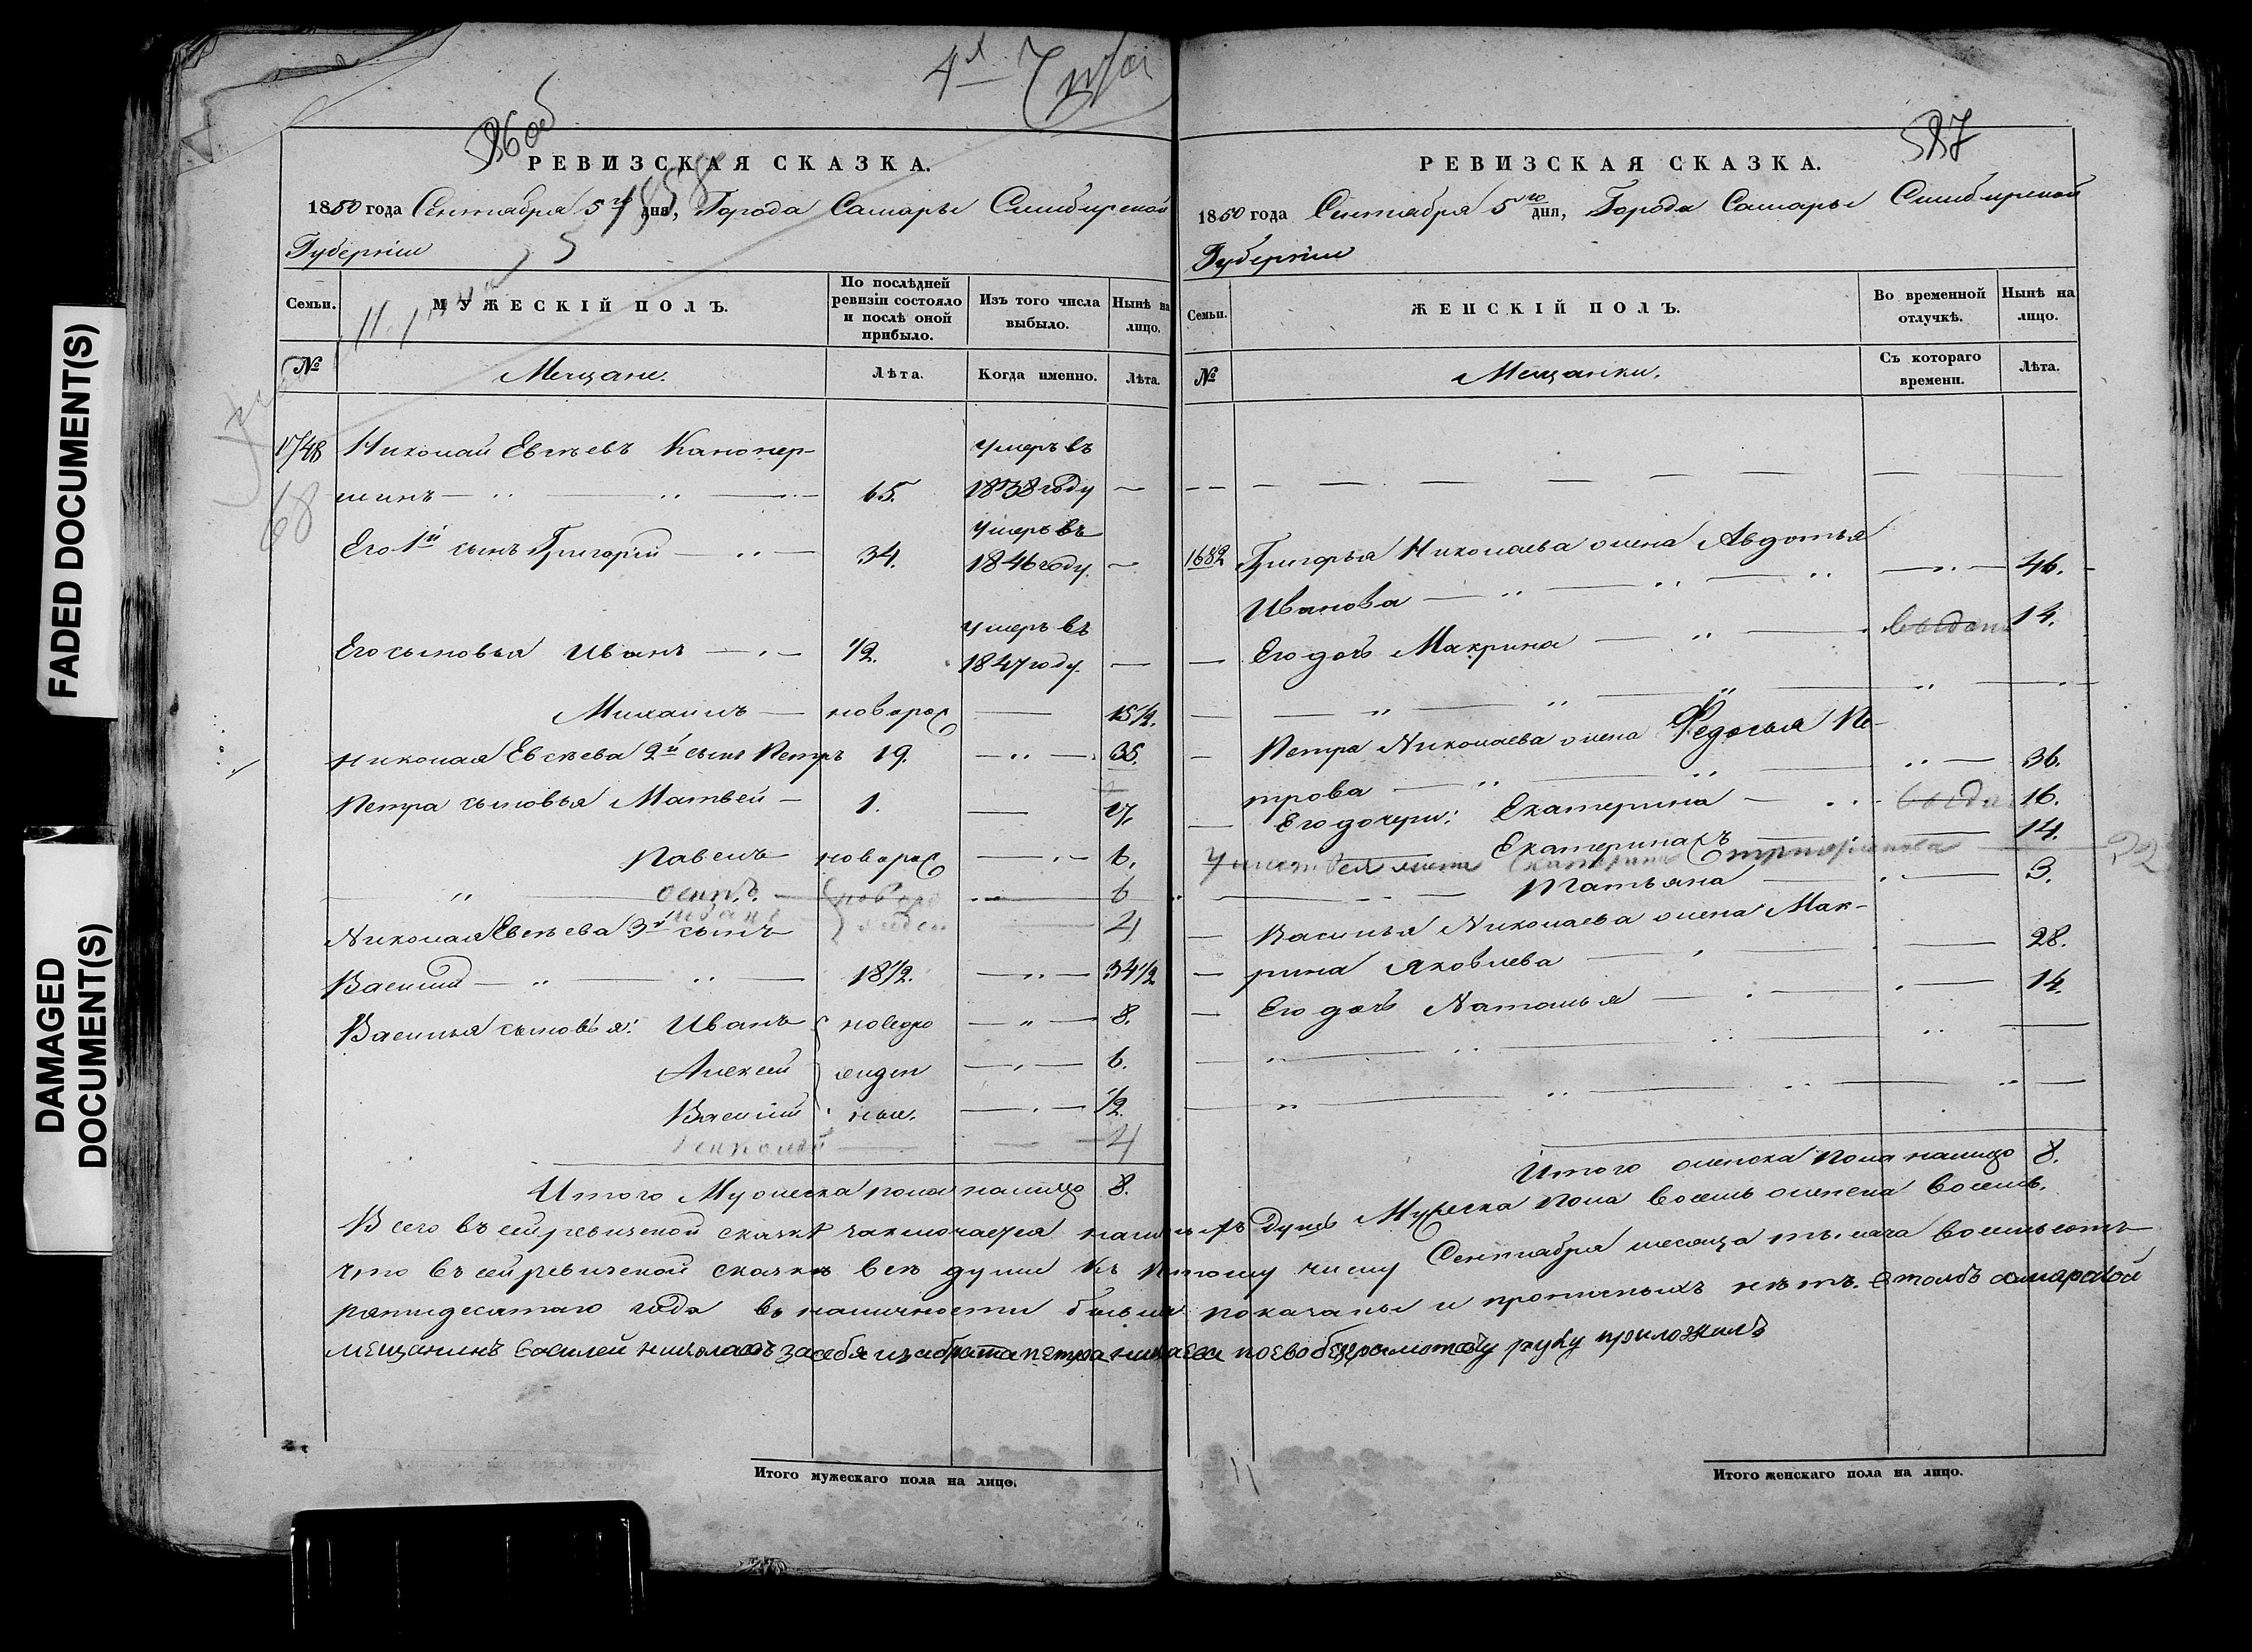 FADED DOCUMENT(S)
DAMAGED
DOCUMENT(S)
РЕВИЗСКАЯ СКАЗКА.
1850 года Сентября 5го дня, Города Самары Симбирской
Губернiи
Семьи.
МУЖЕСКIЙ ПОЛЪ.
По послѣдней
ревизiи состояло
и послѣ оной
прибыло.
Изъ того числа
выбыло.
Нынѣ на
лицо.
№
Мещане.
Лѣта.
Когда именно.
Лѣта.
Николай Евсѣевъ Канонер-
умеръ въ
шинъ 65. 1838 году
умеръ въ
Его 1й сынъ Григорiй 34. 1846 году
умеръ въ
Его сыновья Иванъ 1/2. 1847 году
Михаилъ новорос 15 1/2.
Николая Евсѣева 2й сынъ Петръ 19. 35.
Петра сыновья Матвей 1. 17.
Павелъ новорос 6.
осипъ 6
Николая Евсѣева 3й сынъ 4
Василий 18 1/2. 34 1/2
Василья сыновья: Иванъ новоро 8.
Алексей жден 6.
Василий ные. 1/2.
4
Итого Мужеска пола налицо 8.
РЕВИЗСКАЯ СКАЗКА.
1850 года Сентября 5го дня, Города Самары Симбирской
Губернiи
Семьи.
ЖЕНСКIЙ ПОЛЪ.
Во временной
отлучкѣ.
Нынѣ на
лицо.
№
Мещанки.
Съ котораго
времени.
Лѣта.
1682 Григорья Николаева жена Авдотья
Иванова 46.
Его дочь Макрина выдана 14.
Петра Николаева жена Федосья Пе-
трова 36.
Его дочери: Екатерина выдана 16.
Екатерина 14.
Татьяна 3.
Василья Николаева жена Мак-
рина Яковлева 28.
Его дочь Наталья 14.
Итого женска пола налицо 8.
Всего въ сей ревизской сказкѣ заключается налицо душъ Мужеска пола восемь женска восемь.
Что въ сей ревизской сказкѣ все души къ пятому числу Сентября месяца тысяча восемьсотъ
пятидесятаго года въ наличности бывшие показаны и прописныхъ нѣтъ. въ томъ самарской
мещанинъ василей николаевъ за себя и за брата петра николаева по ево безграмотству руку приложилъ
Итого мужескаго пола на лицо.
Итого женскаго пола на лицо.